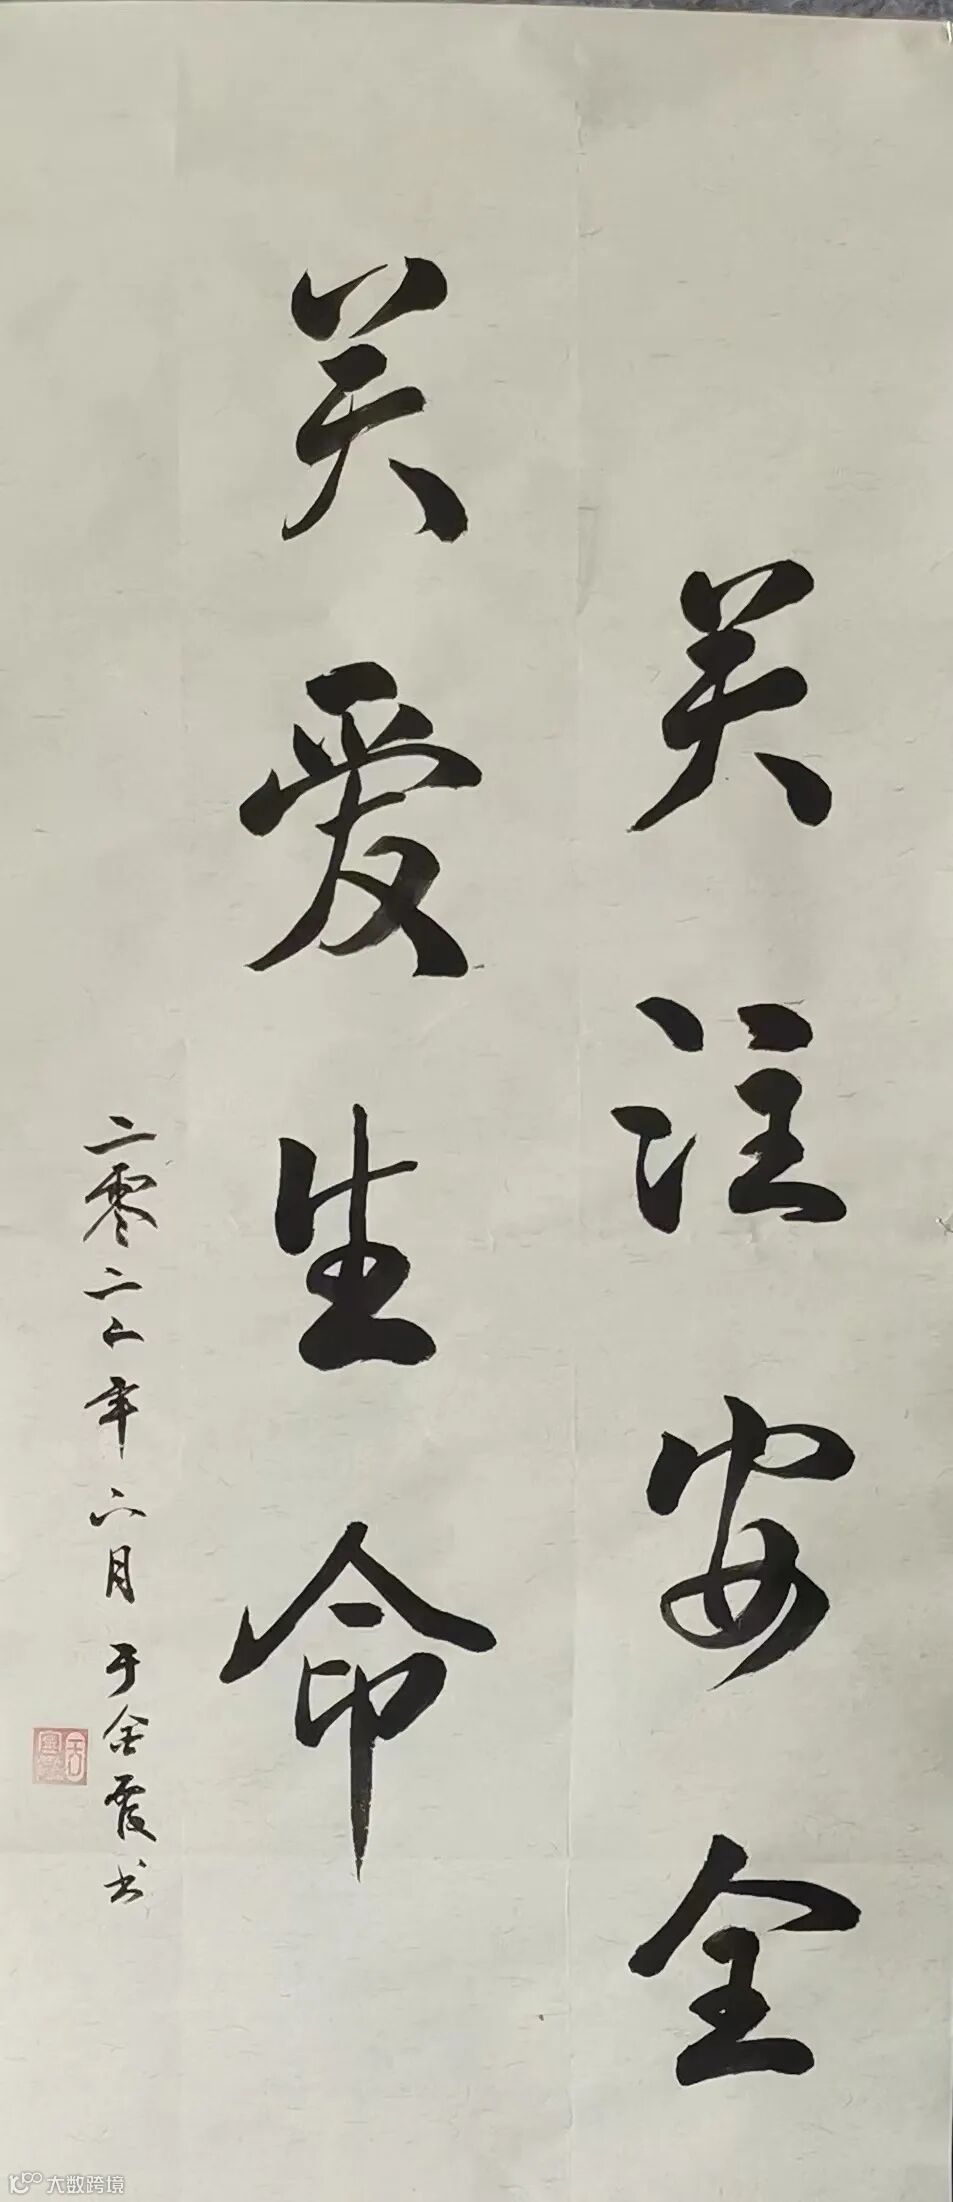 关注安全
关爱生命
二零二二年六月于金霞书
大数跨境